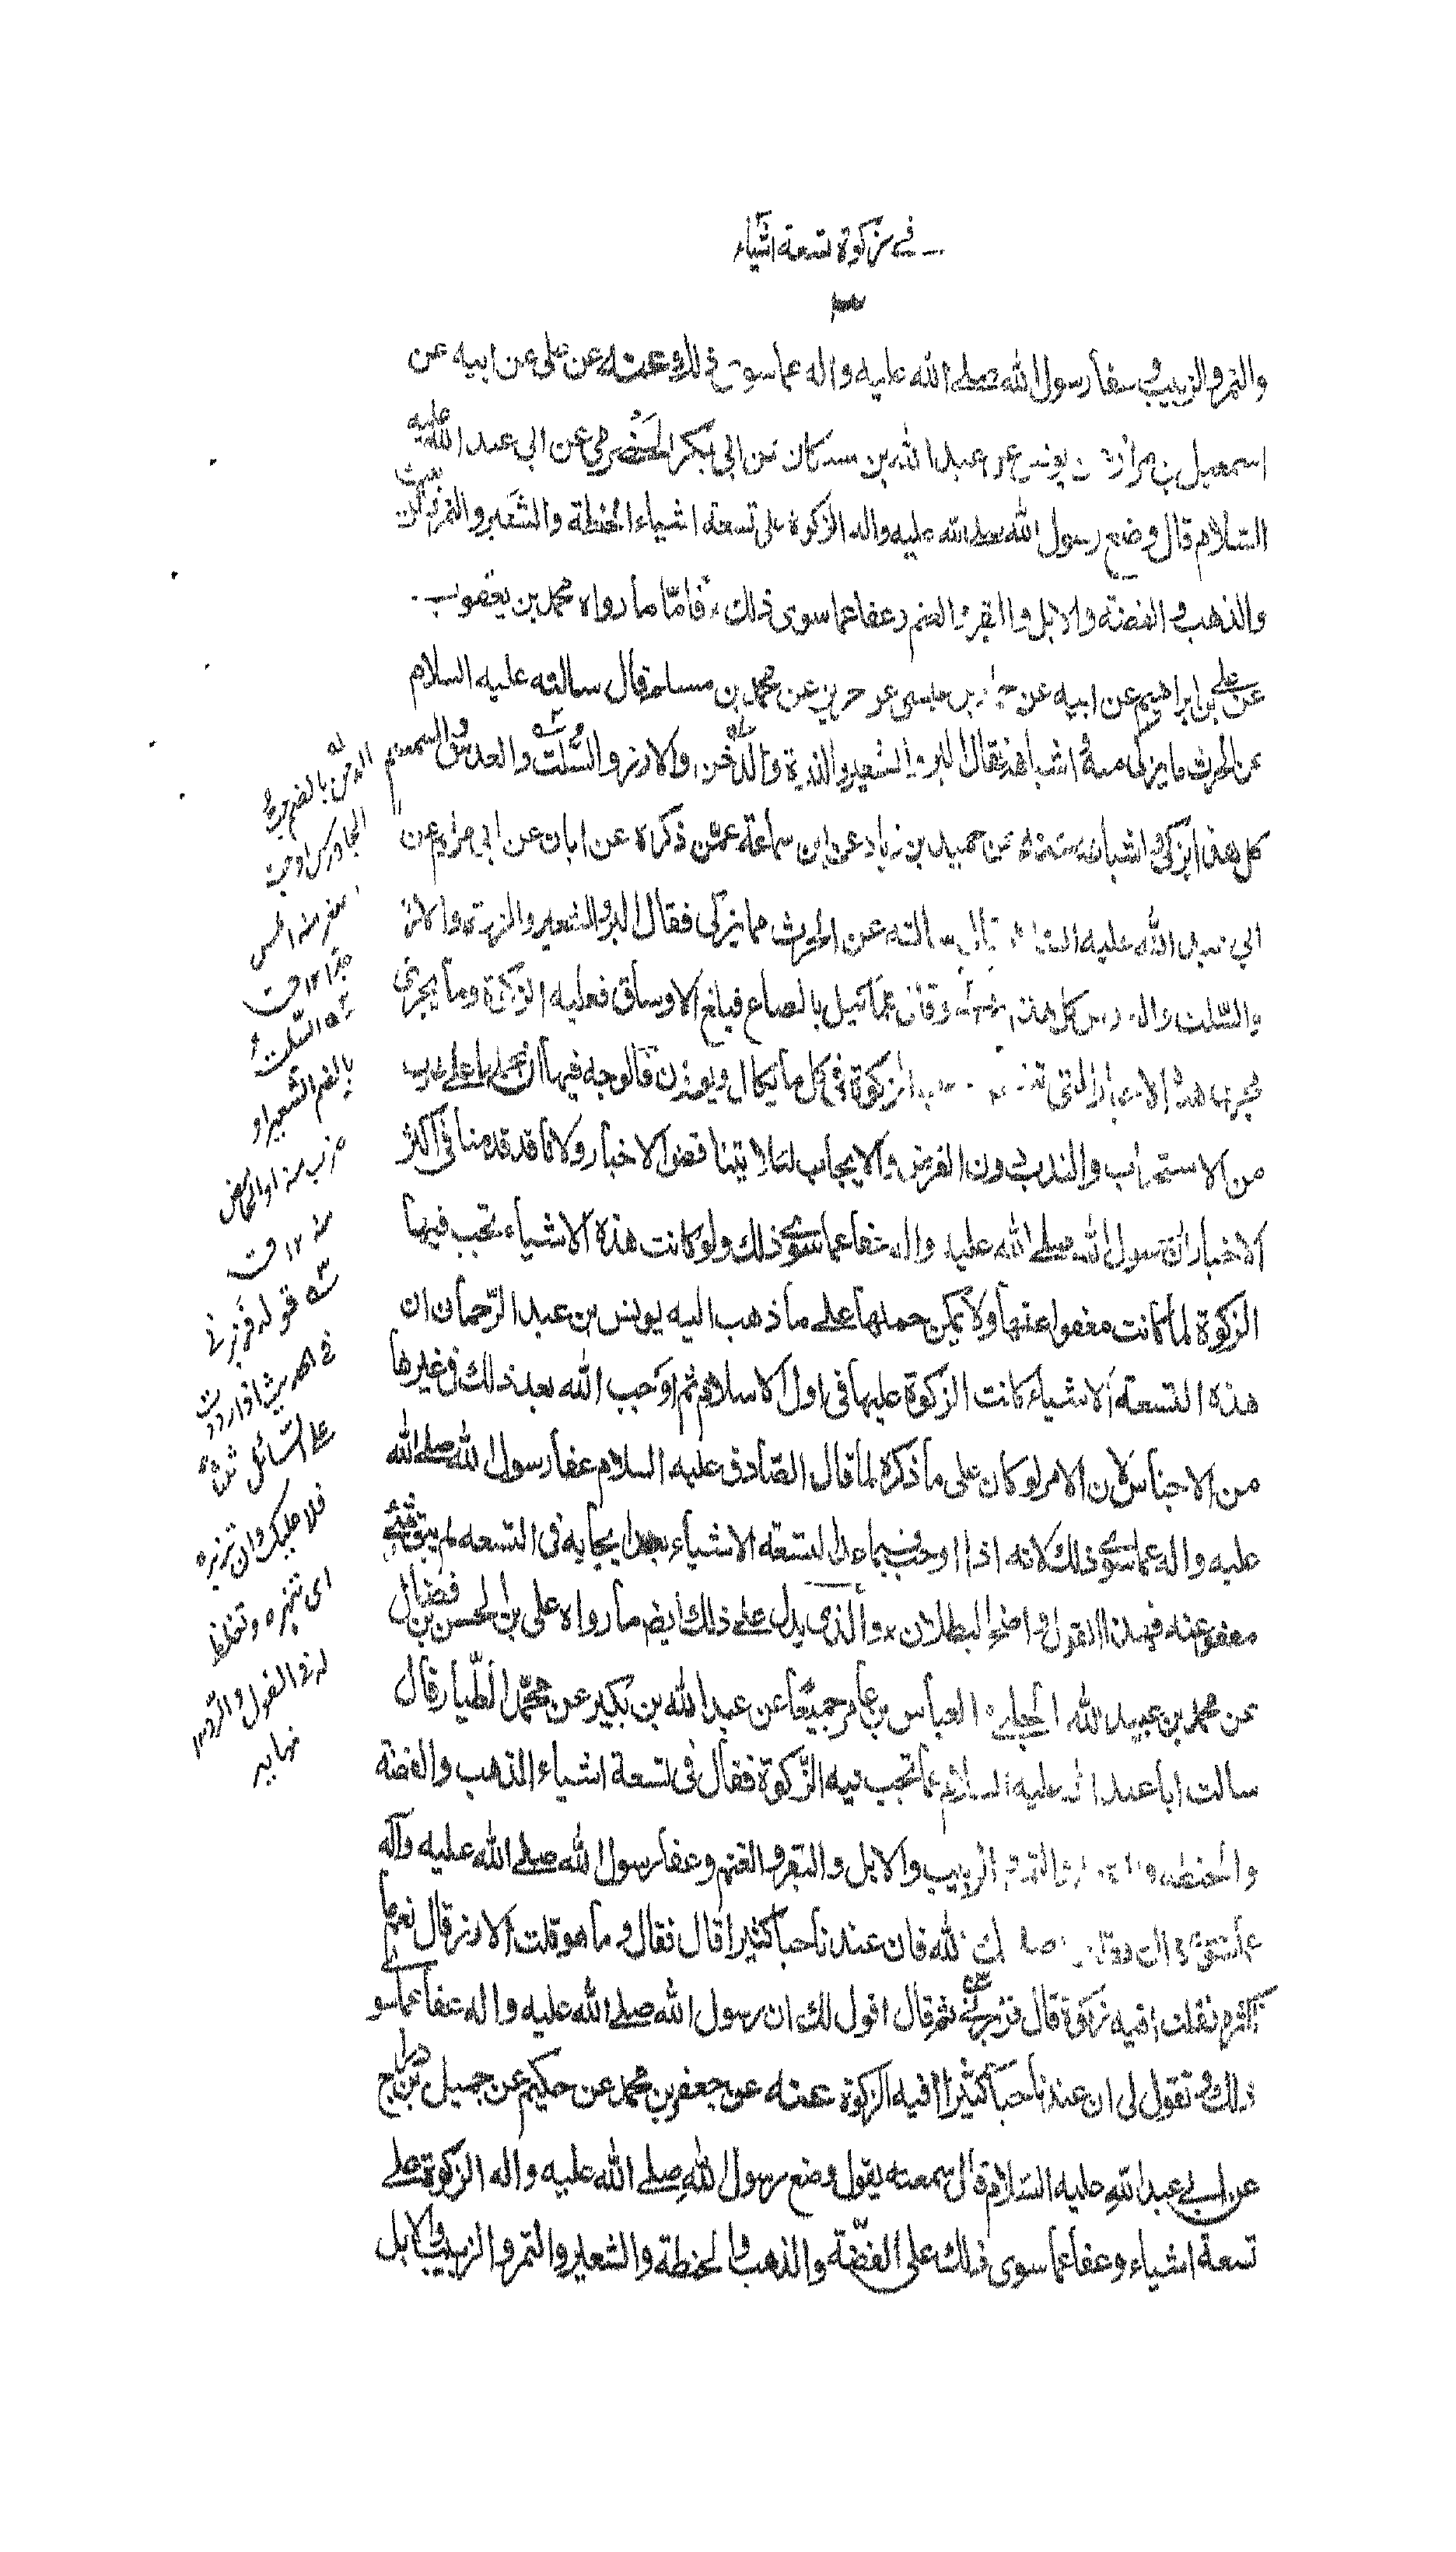 في زكوة تسعة اشياء
٣
والتمر والزبيب وعفا رسول الله صلى الله عليه واله عما سوى ذلك عنه عن على عن ابيه عن
اسمعيل بن مرار عن يونس عن عبد الله بن مسكان عن ابى بكر الحضرمي عن ابى عبد الله عليه
السلام قال وضع رسول الله صلى الله عليه واله الزكوة على تسعة اشياء الحنطة والشعير والتمر والزبيب
والذهب والفضة والابل والبقر والغنم وعفا عما سوى ذلك فامّا ما رواه محمد بن يعقوب
عن على بن ابراهيم عن ابيه عن حماد بن عيسى عن حريز عن محمد بن مسلم قال سالته عليه السلام
عن الحرث ما يزكى منه اشباهه فقال البر والشعير والذرة والدُّخن والارز والسُّلت والعدس والسمسم
كل هذا يزكى واشباهه عنه عن حميد بن زياد عن ابن سماعة عمّن ذكره عن ابان عن ابى مريم عن
ابى عبد الله عليه السلام قال سالته عن الحرث مما يزكى فقال البر والشعير والذرة والارز
والسّلت والعدس كل هذا وقال كل ما كيل بالصاع فبلغ الاوساق فعليه الزكوة وما يجرى
مجرى هذه الاخبار التى الزكوة فى كل ما يكال ويوزن فالوجه فيها ان نحملها على ضرب
من الاستحباب والندب دون الفرض والايجاب لئلا يتناقض الاخبار ولانا قد قدمنا فى اكثر
الاخبار ان رسول الله صلى الله عليه واله عفا عما سوى ذلك ولو كانت هذه الاشياء تجب فيها
الزكوة لما كانت معفوا عنها ولا يمكن حملها على ما ذهب اليه يونس بن عبد الرّحمان ان
هذه التسعة الاشياء كانت الزكوة عليها فى اول الاسلام ثم اوجب الله بعد ذلك فى غيرها
من الاجناس لان الامر لو كان على ما ذكره لما قال الصّادق عليه السلام عفا رسول الله صلى الله
عليه واله عما سوى ذلك لانه اذا اوجب فيما عدا التسعة الاشياء بعد ايجابه فى التسعة لم يبق شئ
معفو عنه فهذا القول واضح البطلان والذى يدل على ذلك ايضا ما رواه على بن الحسن بن فضال
عن محمد بن عبيد الله الحلبي والعباس بن عامر جميعًا عن عبد الله بن بكير عن محمّد الطّيار قال
سالت ابا عبد الله عليه السلام عما تجب فيه الزّكوة فقال فى تسعة اشياء الذهب والفضة
والحنطه والشعير والتمر والزبيب والابل والبقر والغنم وعفا رسول الله صلى الله عليه وآله
عما سوى ذلك فقلت اصلحك الله فان عندنا حبا كثيرا قال فقال وما هو قلت الارز قال نعم ما
اكثره فقلت افيه زكوة قال فزبرني ثم قال اقول لك ان رسول الله صلى الله عليه واله عفا عما سو
ذلك وتقول لى ان عندنا حبا كثيرا افيه الزكوة عنه عن جعفر بن محمد عن حكيم عن جميل بن دراج
عن ابي عبد الله عليه السّلام قال سمعته يقول وضع رسول الله صلى الله عليه واله الزكوة على
تسعة اشياء وعفا عما سوى ذلك على الفضّة والذهب والحنطة والشعير والتمر والزبيب والابل
له الدخن بالضم حبّ
الجاورس او حب
اصغر منه املس
جدّا ١٢ ق
٢ه السّلت
بالضم الشعير او
ضرب منه او الحامض
منه ١٢ ق
٣ه قوله فزبرنى
فى الحديث اذا رددت
على السّائل ثلثا
فلا عليك ان تزبره
اى تنهره وتغلظ
له فى القول والرّد ١٢
نهايه